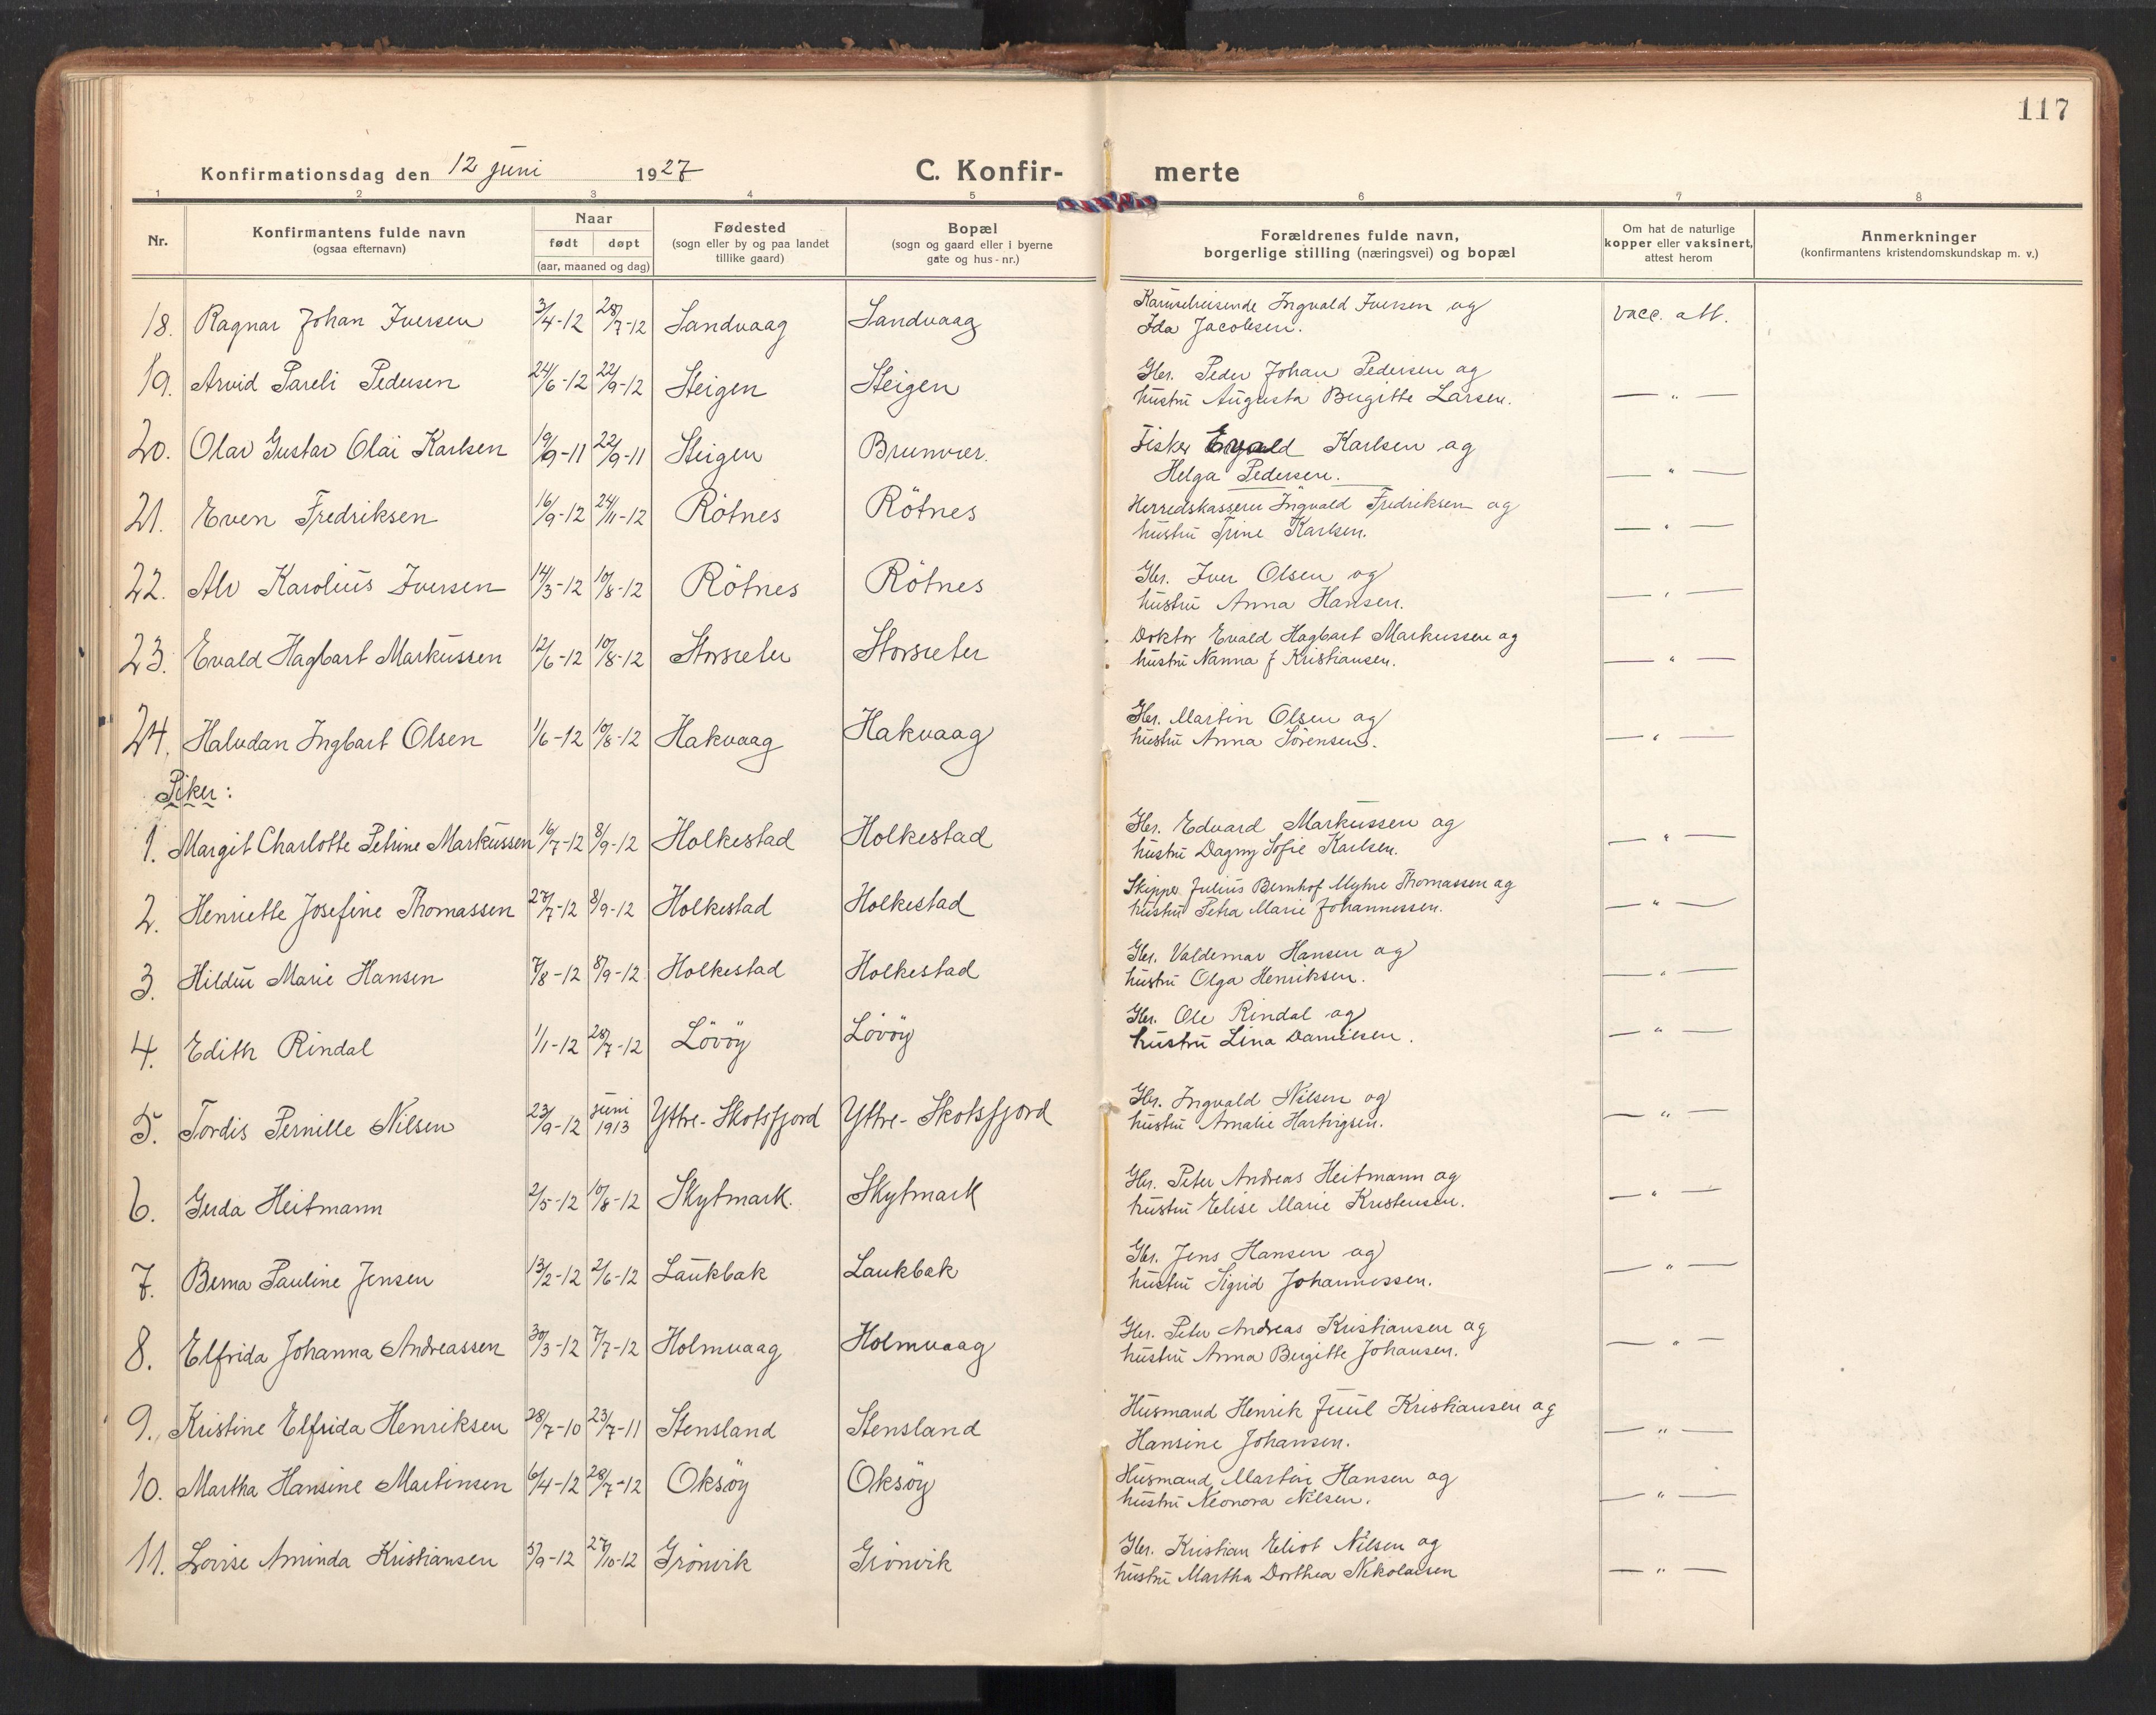 117
Konfirmationsdag den 12 juni 1927 C. Konfir- merte
1 2 3 4 5 6 7 8
Nr. Konfirmantens fulde navn (ogsaa efternavn) Naar født døpt (aar, maaned og dag) Fødested (sogn eller by og paa landet tillike gaard) Bopæl (sogn og gaard eller i byerne gate og hus-nr.) Forældrenes fulde navn, borgerlige stilling (næringsvei) og bopæl Om hat de naturlige kopper eller vaksinert, attest herom Anmerkninger (konfirmantens kristendomskundskap m. v.)
18. Ragnar Johan Iversen 3/4-12 28/7-12 Sandvaag Sandvaag Ingvald Iversen og vacc. att.
Ida Jacobsen.
19. Arvid Pareli Pedersen 24/6-12 22/9-12 Steigen Steigen Gbr. Peder Johan Pedersen og
hustru Augusta Birgitte Larsen. — " —
20. Olav Gustav Olai Karlsen 19/9-11 22/9-11 Steigen Brunvær. Fisker Evald Karlsen og
Helga Pedersen. — " —
21. Even Fredriksen 16/9-12 24/11-12 Rötnes Rötnes Herredskasserer Ingvald Fredriksen og
hustru Trine Karlsen. — " —
22. Alv Karolius Iversen 14/3-12 10/8-12 Rötnes Rötnes Gbr. Iver Olsen og
hustru Anna Hansen. — " —
23. Evald Hagbart Markussen 12/6-12 10/8-12 Storsæter Storsæter Doktor Evald Hagbart Markussen og
hustru Nanna J Kristiansen. — " —
24. Halvdan Ingbart Olsen 1/6-12 10/8-12 Hakvaag Hakvaag Gbr. Martin Olsen og
hustru Anna Sörensen. — " —
Piker:
1. Margit Charlotte Petrine Markussen 16/7-12 8/9-12 Holkestad Holkestad Gbr. Edvard Markussen og
hustru Dagny Sofie Karlsen. — " —
2. Henriette Josefine Thomassen 27/7-12 8/9-12 Holkestad Holkestad Skipper Julius Bernhof Myhre Thomassen og
hustru Petra Marie Johannessen. — " —
3. Hildur Marie Hansen 7/8-12 8/9-12 Holkestad Holkestad Gbr. Valdemar Hansen og
hustru Olga Henriksen. — " —
4. Edith Rindal 1/1-12 28/7-12 Lövöy Lövöy Gbr. Ole Rindal og
hustru Lina Danielsen. — " —
5. Tordis Pernille Nilsen 23/9-12 juni 1913 Yttre-Skotsfjord Yttre-Skotsfjord Gbr. Ingvald Nilsen og
hustru Amalie Hartvigsen. — " —
6. Gerda Heitmann 2/5-12 10/8-12 Skytmark. Skytmark Gbr. Peter Andreas Heitmann og
hustru Elise Marie Kristensen. — " —
7. Berna Pauline Jensen 13/2-12 2/6-12 Laukbak Laukbak Gbr. Jens Hansen og
hustru Sigrid Johannessen. — " —
8. Elfrida Johanna Andreassen 30/3-12 7/7-12 Holmvaag Holmvaag Gbr. Peter Andreas Kristiansen og
hustru Anna Birgitte Johansen. — " —
9. Kristine Elfrida Henriksen 28/7-10 23/7-11 Stensland Stensland Husmand Henrik Juul Kristiansen og
Hansine Johansen. — " —
10. Martha Hansine Martinsen 6/4-12 28/7-12 Oksöy Oksöy Husmand Martin Hansen og
hustru Neonora Nilsen. — " —
11. Lovise Aminda Kristiansen 5/9-12 27/10-12 Grönvik Grönvik Gbr. Kristian Eliot Nilsen og
hustru Martha Dorthea Nikolaisen — " —